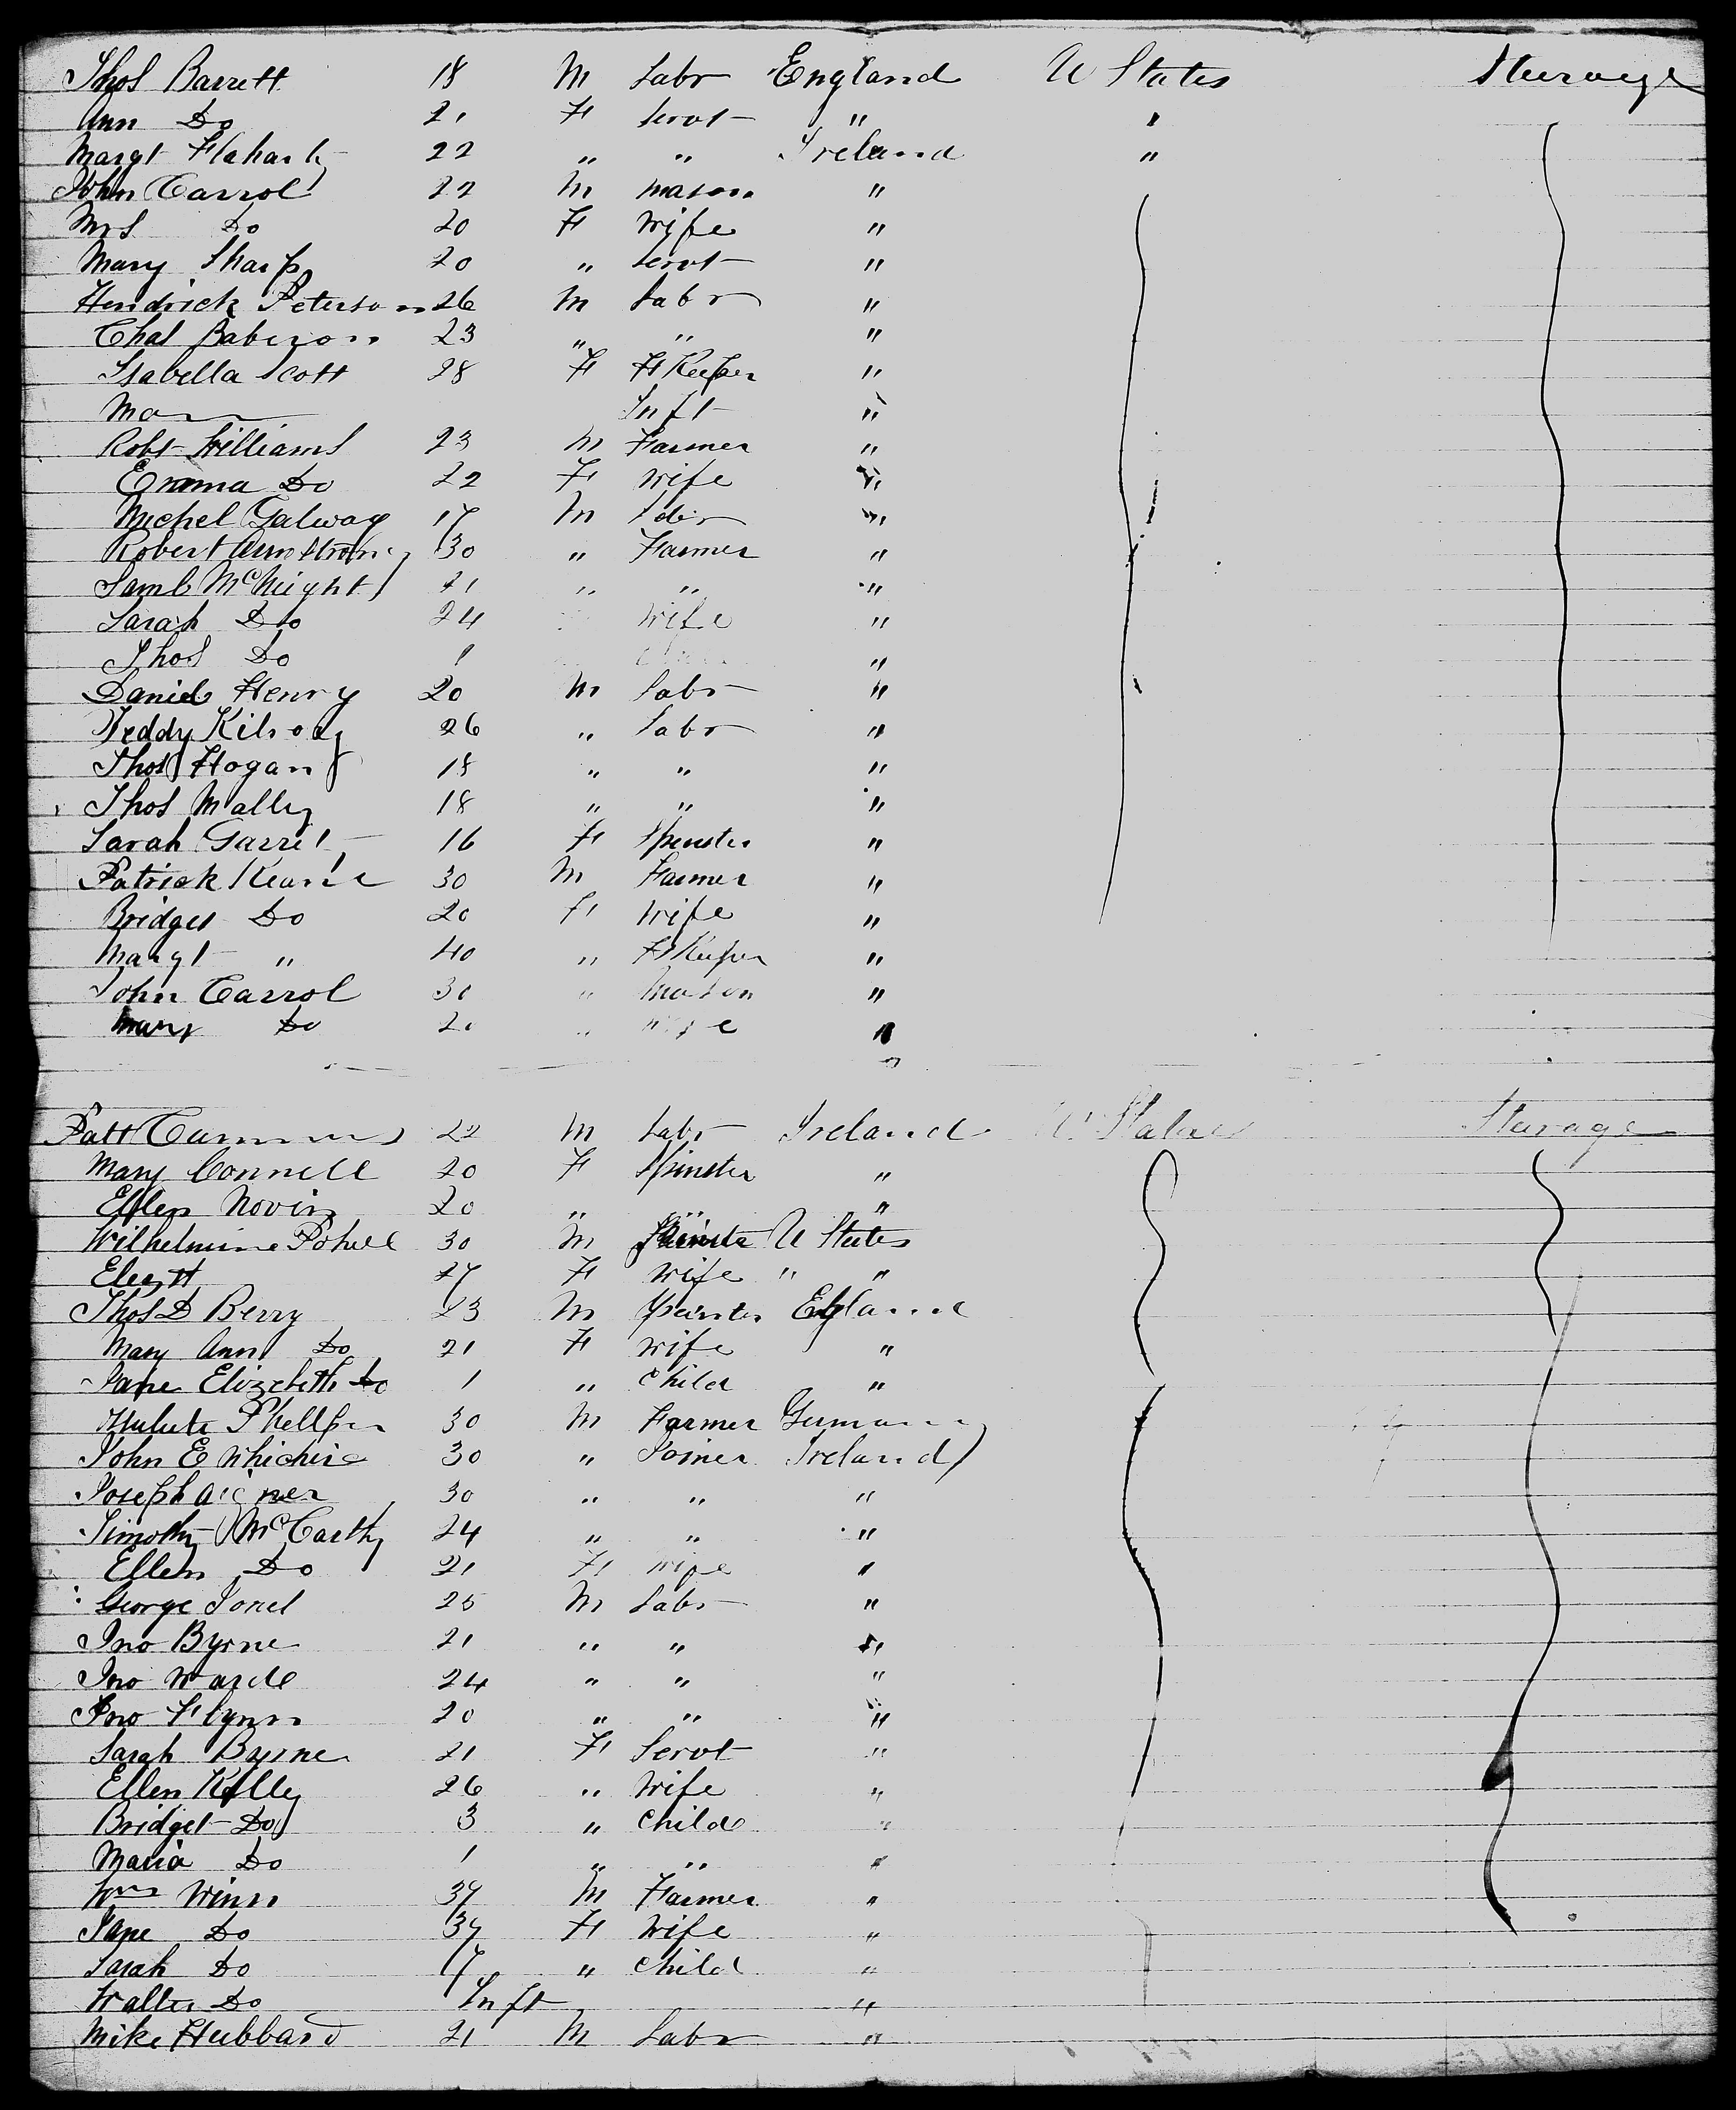 Thos Barrett 18 M Labr England U States Steerage
Ann Do 21 F Servt " "
Margt Flaharty 22 " " Ireland "
John Carrol 22 M Mason "
Mrs Do 20 F Wife "
Mary Sharp 20 " Servt "
Hendrick Peterson 26 M Labr "
Chas 23 " " "
Isabella Scott 28 F H Keeper "
Inft "
Robt Williams 23 M Farmer "
Emma Do 22 F Wife "
Michel Galway 17 M Labr "
Robert Armstrong 30 " Farmer "
Saml McKnight 21 " " "
Sarah Do 24 Wife "
Thos Do 1 "
Daniel Henry 20 M Labr "
Teddy Kilroy 26 " Labr "
Thos Hogan 18 " " "
Thos Mally 18 " " "
Sarah Garret 16 F Spinster "
Patrick Keane 30 M Farmer "
Bridget Do 20 F Wife "
Margt " 40 " H Keeper "
John Carrol 30 " Mason "
Mary Do 20 " Wife "
Patt 22 M Labr Ireland U States Steerage
Mary Connell 20 F Spinster "
Ellen Novin 20 " " "
Wilhelmine 30 M U States
27 F Wife " "
Thos D Berry 23 M Painter England
Mary Ann Do 21 F Wife "
Jane Elizebeth Do 1 " Child "
30 M Farmer Germany
John E 30 " Joiner Ireland
Joseph 30 " " "
Timothy McCarthy 24 " " "
Ellen Do 21 F Wife "
George Jones 25 M Labr "
Jno Byrne 21 " " "
Jno Warde 24 " " "
Jno Flynn 20 " " "
Sarah Byrne 21 F Servt "
Ellen Kelly 26 " Wife "
Bridget Do 3 " Child "
Maria Do 1 " " "
Wm Winn 37 M Farmer "
Jane Do 37 F Wife "
Sarah Do 7 " Child "
Walter Do Inft "
Mike Hubbard 21 M Labr "